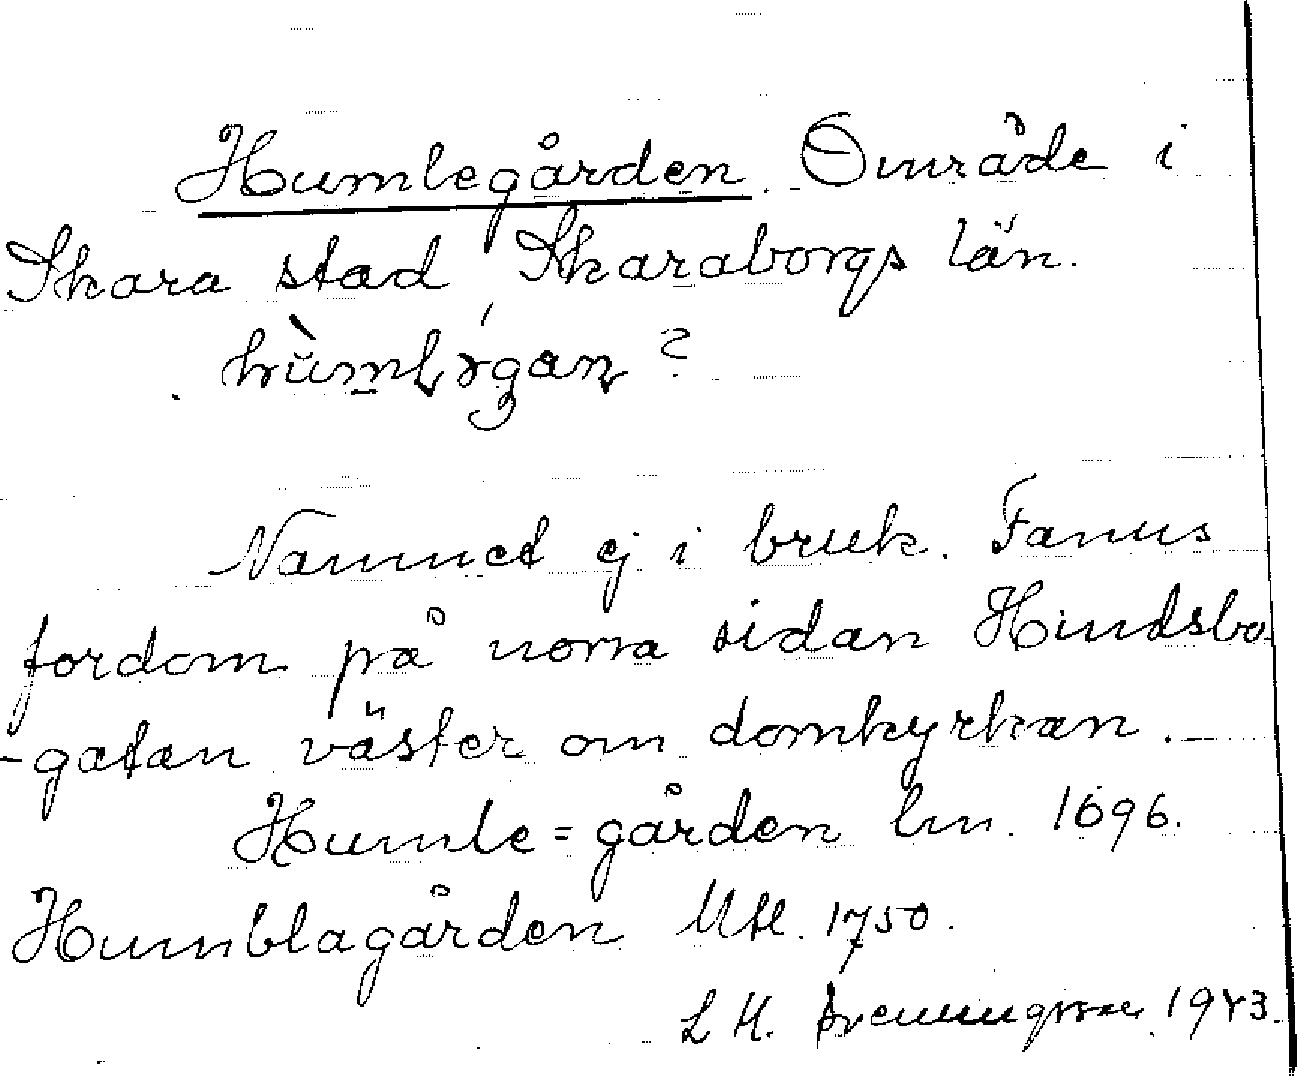 Humlegården. Område i
Skara stad, Skaraborgs län.
Namnet ej i bruk. Fanns
fordom på norra sidan Hindsbo-
-gatan väster om domkyrkan. –
Humle=gården lm. 1696.
Humblagården 1750.
1943.